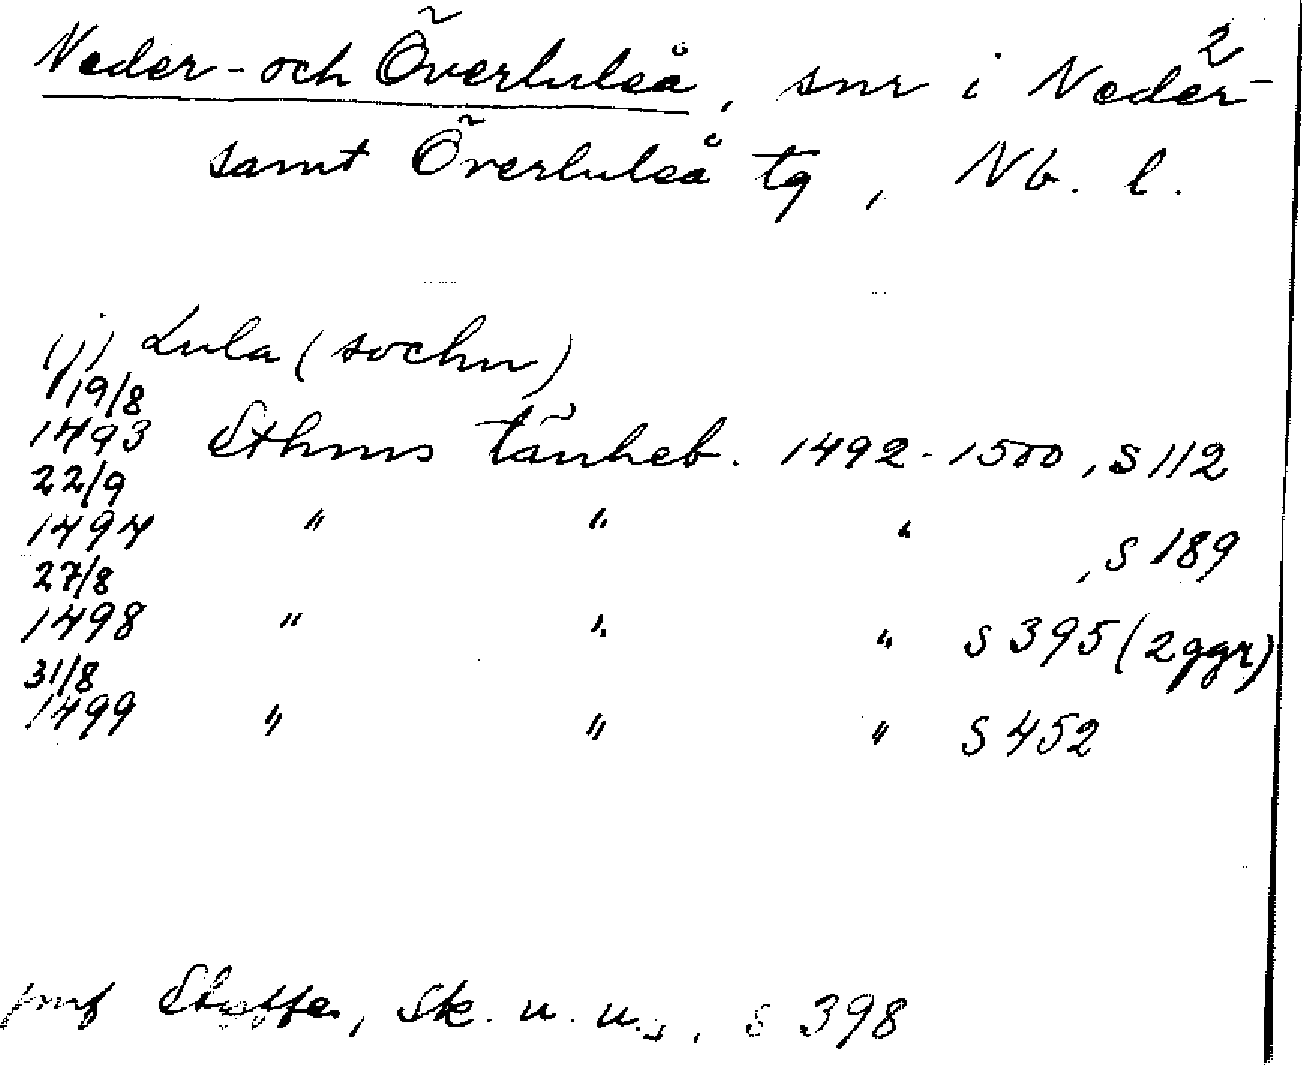 2
Neder- och Överluleå, snr i Neder-
samt Överluleå tg, Nb. l.
(j) Lula (sochn)
19/8
1493 Sthms tänkeb. 1492-1500, s 112
22/9
1494 " " " , s 189
27/8
1498 " " " s 395 (2 ggr)
31/8
1499 " " " s 452
jmf Steffen, Sk. u. u., s 398